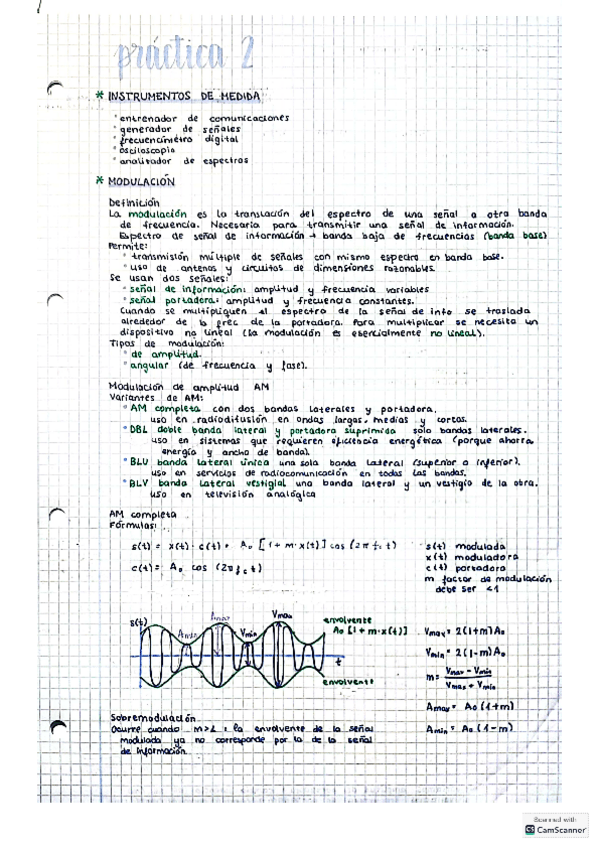 práctica 2
* INSTRUMENTOS DE MEDIDA
° entrenador de comunicaciones
° generador de señales
° frecuencímetro digital
° osciloscopio
° analizador de espectros
* MODULACIÓN
Definición
La modulación es la translación del espectro de una señal a otra banda
de frecuencia. Necesaria para transmitir una señal de información.
Espectro de señal de información → banda baja de frecuencias (banda base)
Permite:
° transmisión múltiple de señales con mismo espectro en banda base.
° uso de antenas y circuitos de dimensiones razonables.
Se usan dos señales:
° señal de información: amplitud y frecuencia variables
° señal portadora: amplitud y frecuencia constantes.
Cuando se multipliquen el espectro de la señal de info se traslada
alrededor de la frec de la portadora. Para multiplicar se necesita un
dispositivo no lineal (la modulación es esencialmente no lineal).
Tipos de modulación:
° de amplitud.
° angular (de frecuencia y fase).
Modulación de amplitud AM
Variantes de AM:
° AM completa con dos bandas laterales y portadora.
uso en radiodifusión en ondas largas, medias y cortas.
° DBL doble banda lateral y portadora suprimida solo bandas laterales.
uso en sistemas que requieren eficiencia energética (porque ahorra
energía y ancho de banda).
° BLU banda lateral única una sola banda lateral (superior o inferior).
uso en servicios de radiocomunicación en todas las bandas.
° BLV banda lateral vestigial una banda lateral y un vestigio de la otra.
uso en televisión analógica
AM completa
Fórmulas:
s(t) = x(t) · c(t) = A₀ [1 + m · x(t)] cos (2π fc t)
c(t) = A₀ cos (2π fc t)
s(t) modulada
x(t) moduladora
c(t) portadora
m factor de modulación
debe ser <1
s(t)
Amin
Amax
Vmin
Vmax
t
envolvente
A₀ [1 + m · x(t)]
envolvente
Vmax = 2(1+m)A₀
Vmin = 2(1-m)A₀
m = (Vmax - Vmin) / (Vmax + Vmin)
Amax = A₀ (1+m)
Amin = A₀ (1-m)
Sobremodulación
Ocurre cuando m>1 : la envolvente de la señal
modulada ya no corresponde por la de la señal
de información.
Scanned with
CS CamScanner